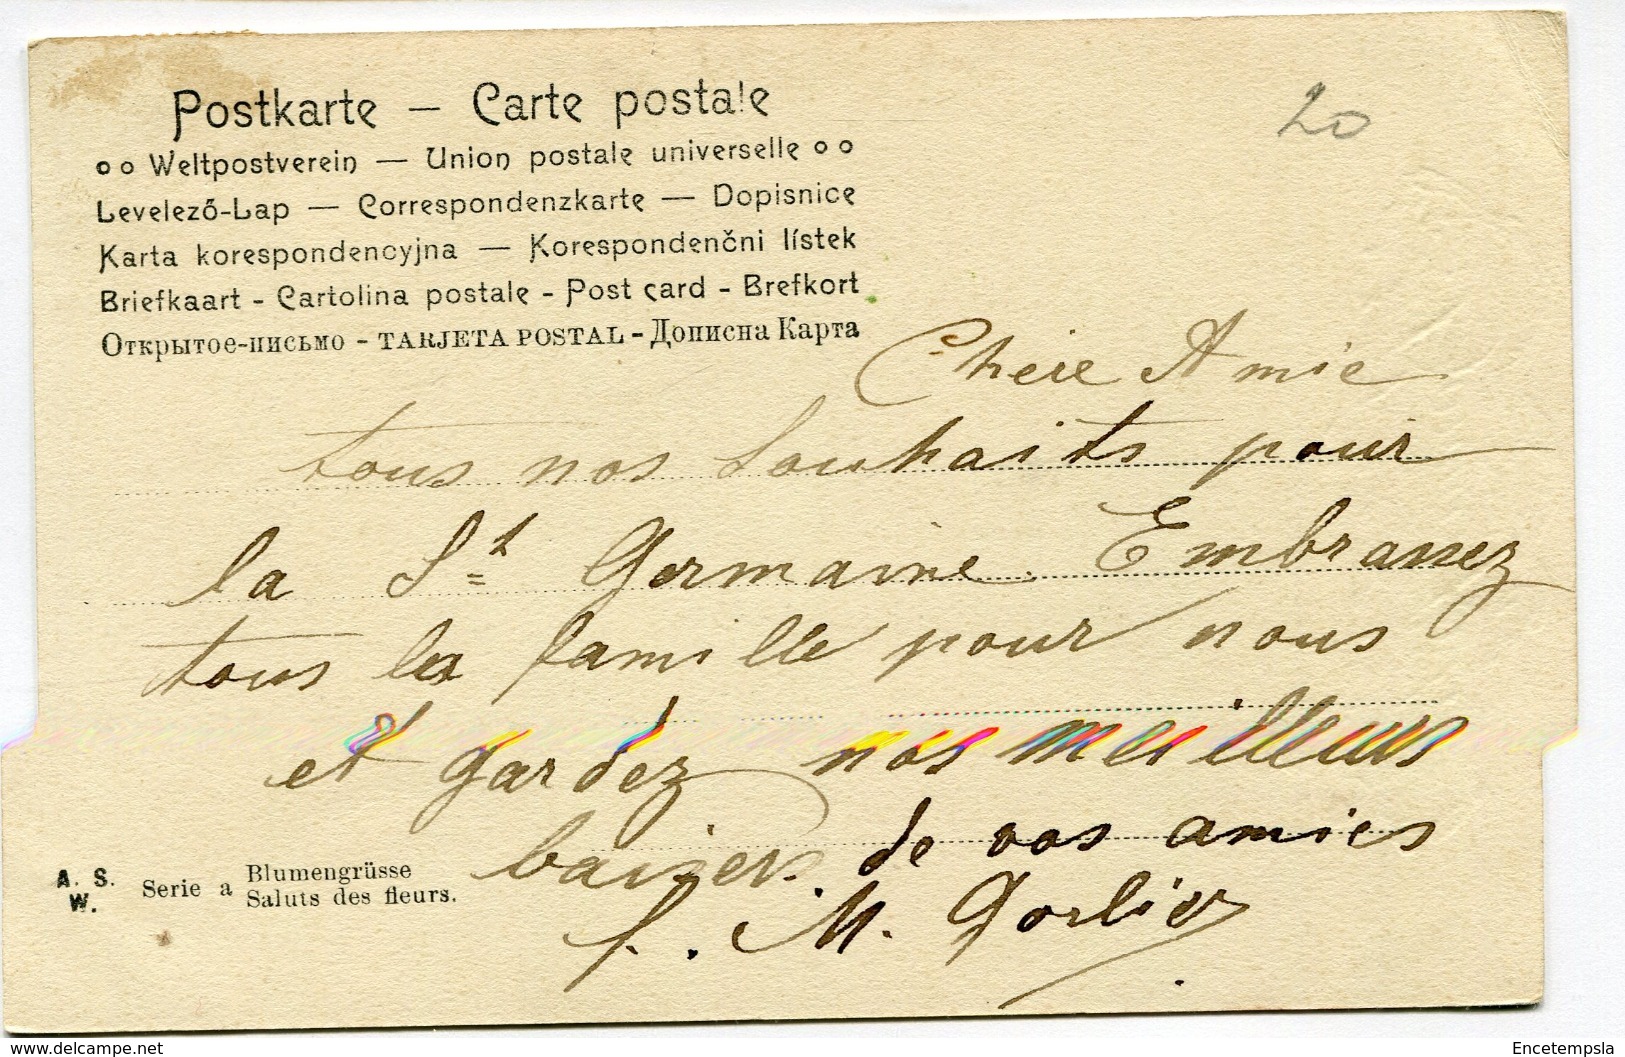 Postkarte – Carte postale
Weltpostverein — Union postale universelle
Levelező-Lap — Correspondenzkarte — Dopisnice
Karta korespondencyjna — Korespondenční lístek
Briefkaart - Cartolina postale - Post card - Brefkort
Открытое-письмо - TARJETA POSTAL - Дописна Карта
20
Chere Amie
tous nos Souhaits pour
la St Germaine. Embrassez
tous la famille pour nous
et gardez nos meilleurs
baisers de vos amies
M. Gorlier
A. S. W.
Serie a
Blumengrüsse
Saluts des fleurs.
www.delcampe.net
Encetempsla